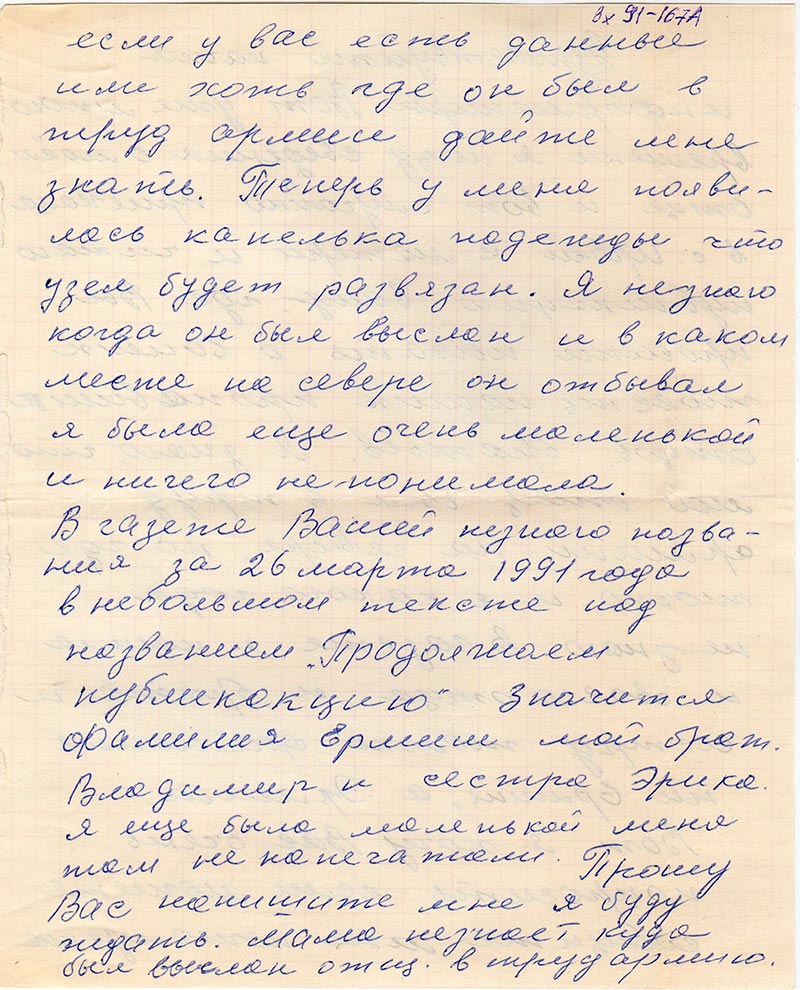 Вх 91-167А
если у вас есть данные
или хоть где он был в
труд армии дайте мне
знать. Теперь у меня появи-
лась капелька надежды что
узел будет развязан. Я незнаю
когда он был выслан и в каком
месте на севере он отбывал
я была еще очень маленькой
и ничего не понимала.
В газете Вашей незнаю назва-
ния за 26 марта 1991 года
в небольшом тексте под
названием „Продолжаем
публикакцию“ Значится
фамилия Ермиш мой брат.
Владимир и сестра Эрика.
я еще была маленькой меня
там не напечатали. Прошу
Вас напишите мне я буду
ждать. Мама незнает куда
был выслан отец. в труд армию.